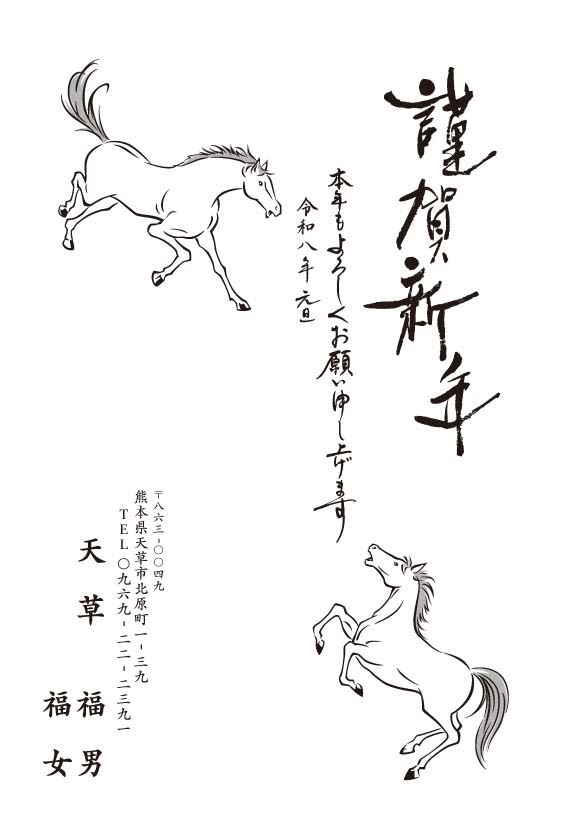 謹賀新年
本年もよろしくお願い申し上げます
令和八年 元旦
〒八六三-〇〇四九
熊本県天草市北原町一-三九
TEL〇九六九-二二-二三九一
天草 福男
福女